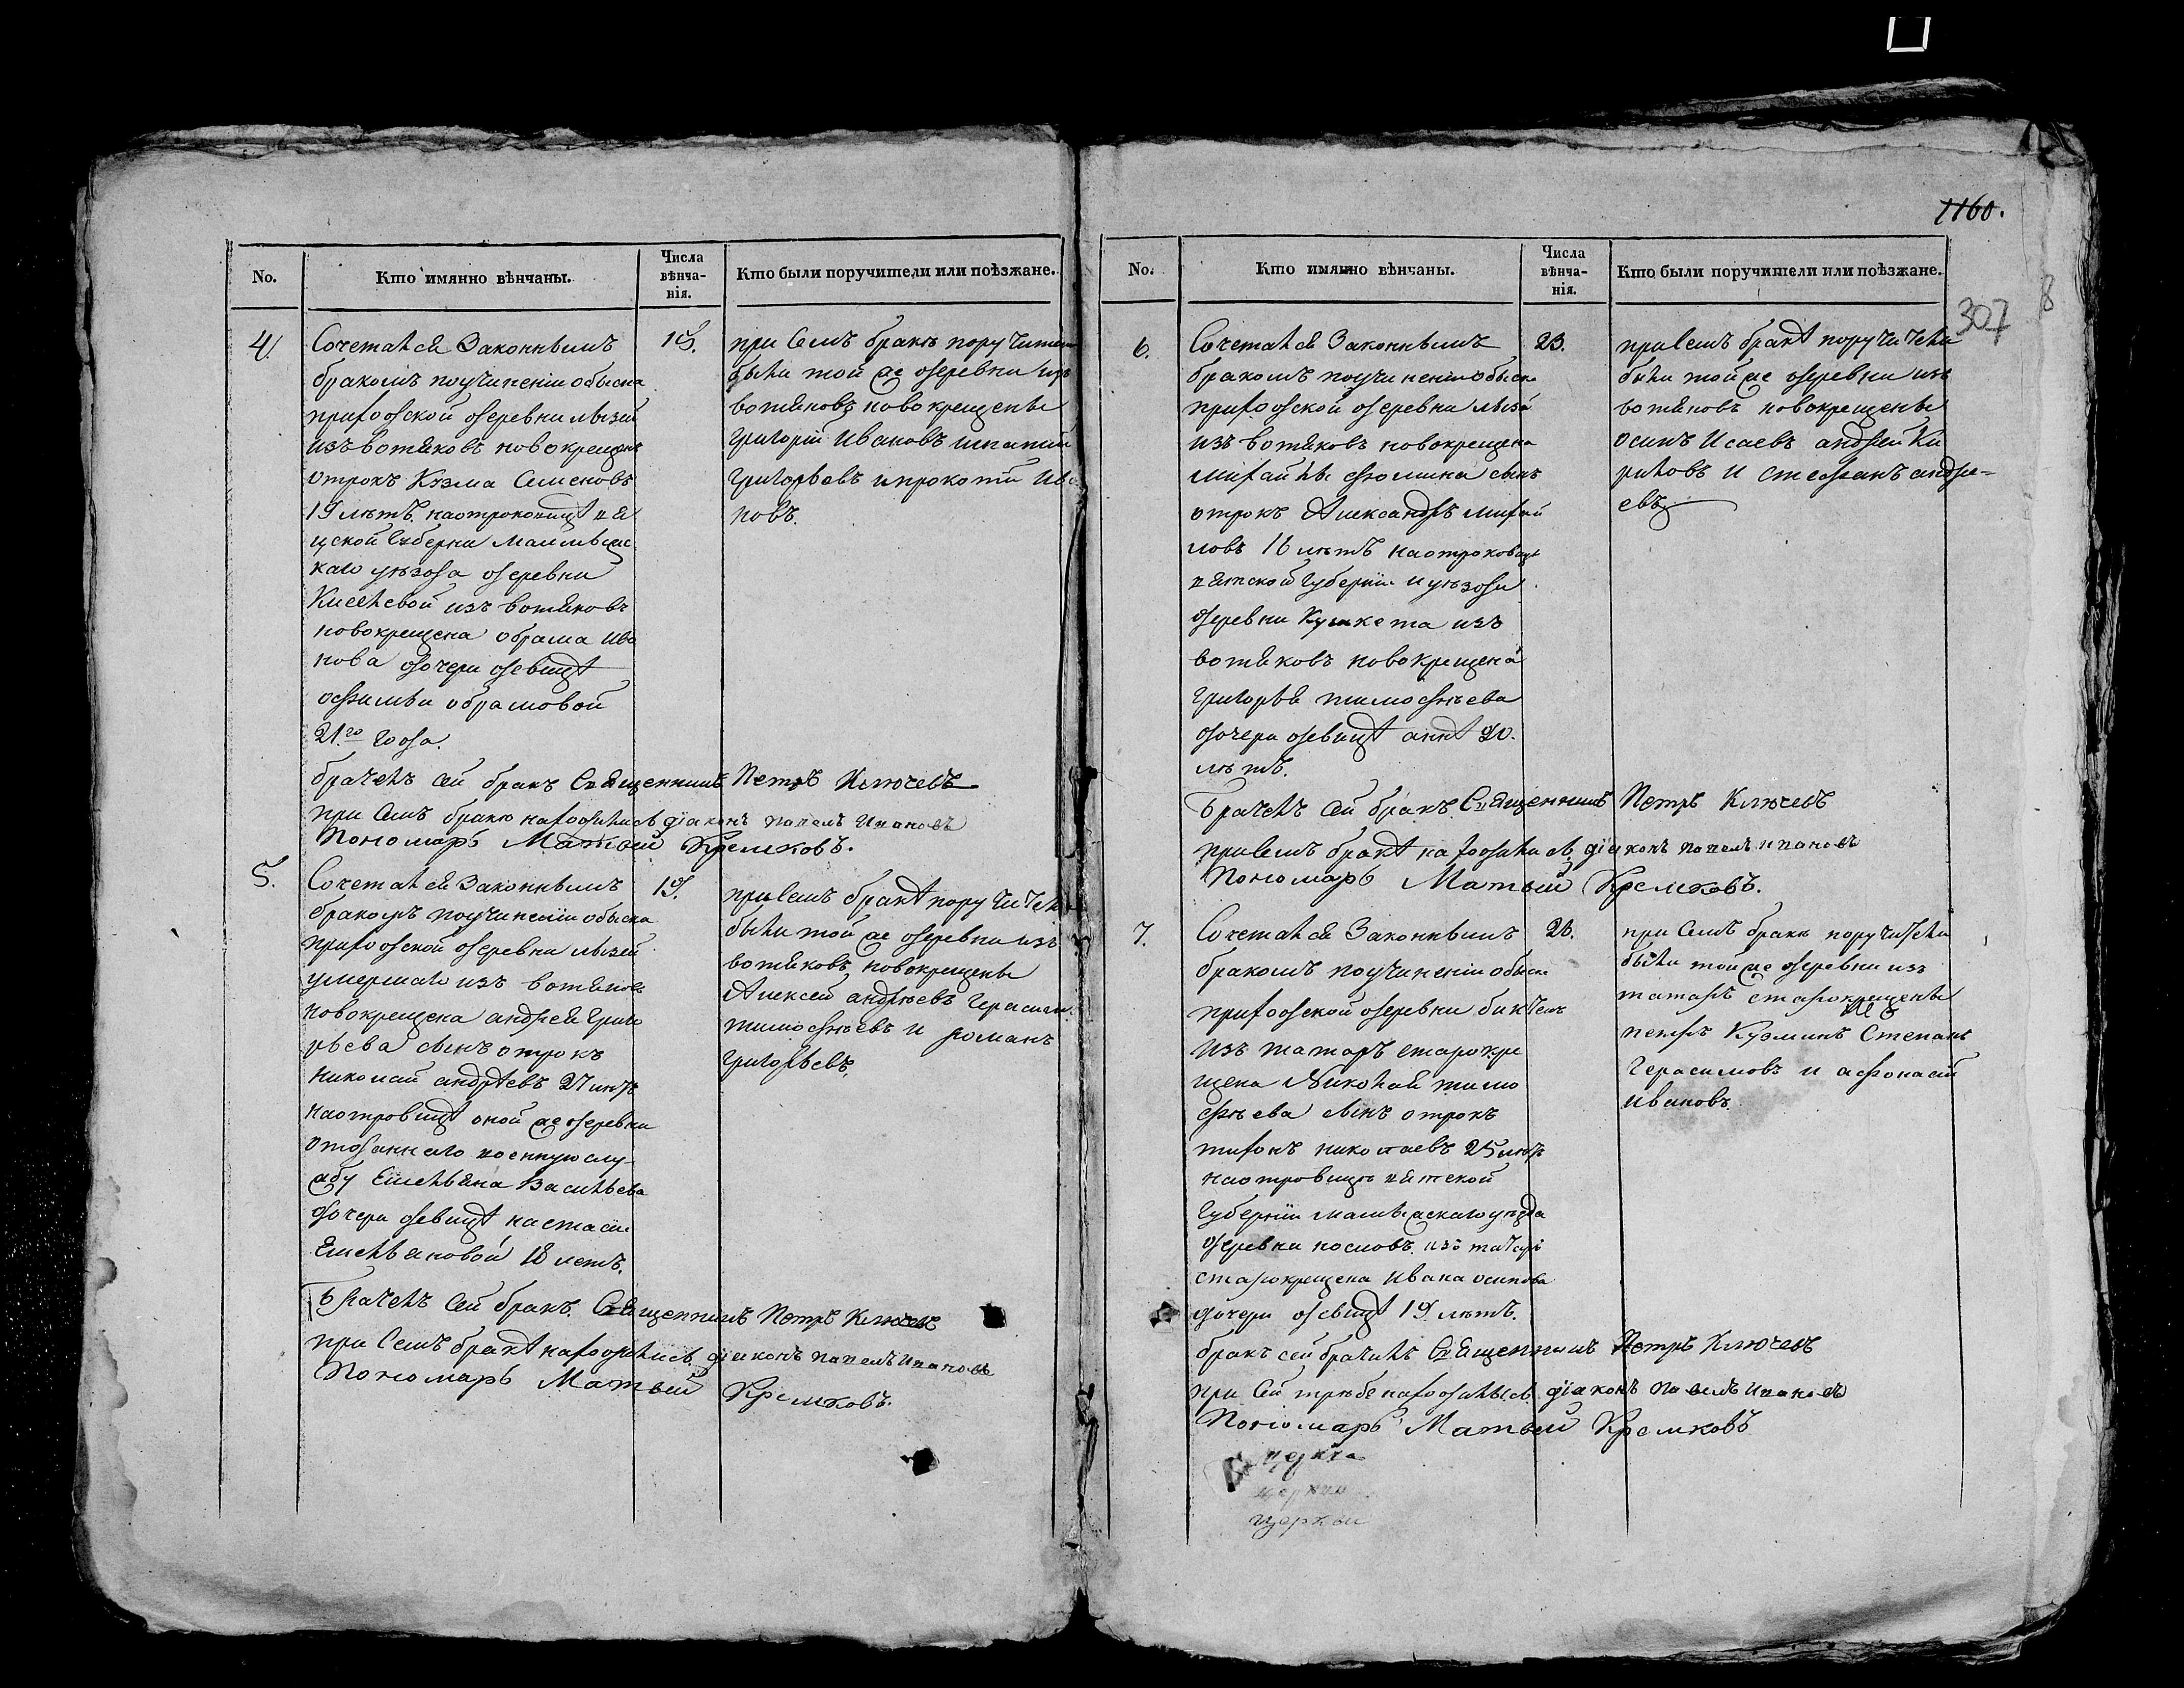 1160.
307
8
No.
Кто имянно вѣнчаны.
Числа вѣнча-нія.
Кто были поручители или поѣзжане.
4.
Сочетался Законнымъ
бракомъ поучиненіи обыска
приходской деревни
изъ вотяковъ новокрещенъ
отрокъ Кузма Семеновъ
19 лѣтъ. наотроковицѣ вя
цской Губерни Малмыжс
каго уѣзда деревни
Киселевой изъ вотяковъ
новокрещена обрама ива
нова дочери девицѣ
офимьи обрамовой
21.го года.
15.
при семъ бракѣ поручители
были той же деревни изъ
вотяковъ новокрещены
григорій Ивановъ игнатий
григорьевъ ипрокопий ива
новъ.
брачелъ сей бракъ Священникъ Петръ Ключевъ
при семъ бракѣ находились діаконъ павелъ ивановъ
Пономарь Матвей Кремковъ.
5.
Сочетался Законнымъ
бракомъ поучинении обыска
приходской деревни
умершаго изъ вотяковъ
новокрещена андрея григо
рьева сынъ отрокъ
николай андрѣевъ 27 лѣтъ
наотровицѣ оной же деревни
отданнаго военную слу
жбу Емельяна Васильева
дочери девицѣ настасіи
Емельяновой 18 летъ.
19.
присемъ бракѣ поручители
были той же деревни изъ
вотяковъ новокрещены
Алексей андрѣевъ Герасимъ
тимофѣевъ и романъ
григорьевъ.
Брачелъ сей бракъ. Священникъ Петръ Ключевъ
при Семъ бракѣ находились діаконъ павелъ ивановъ
Пономарь Матвей Кремковъ.
No.
Кто имянно вѣнчаны.
Числа вѣнча-нія.
Кто были поручители или поѣзжане.
6.
Сочетался Законнымъ
бракомъ поучинении обыска
приходской деревни
изъ вотяковъ новокрещена
михайлы фомина сынъ
отрокъ Александръ михай
ловъ 16 лѣтъ наотроковицѣ
вятской Губерніи и уѣзда
деревни Кушкета изъ
вотяковъ новокрещена
григорья тимофѣева
дочери девицѣ аннѣ 20.
лѣтъ.
23.
присемъ бракѣ поручители
были той же деревни изъ
вотяковъ новокрещены
осипъ Исаевъ андрей Ки
риловъ и стефанъ андре-
евъ
Брачелъ сей бракъ. Священникъ Петръ Ключевъ
присемъ бракѣ находились діаконъ павелъ ивановъ
Пономарь Матвей Кремковъ.
7.
Сочетался Законнымъ
бракомъ поучиненіи обыска
приходской деревни
изъ татаръ старокре
щена Николай тимо
фѣева сынъ отрокъ
тихонъ николаевъ 25 лѣтъ
наотровицѣ вятской
Губерніи малмыжскаго уѣзда
деревни нословъ. изъ татаръ
старокрещена ивана осипова
дочери девицѣ 19 лѣтъ.
26.
при семъ бракѣ поручители
были той же деревни изъ
татаръ старокрещены
петръ Кузминъ Степанъ
Герасимовъ и афонасій
ивановъ.
бракъ сей брачилъ Священникъ Петръ Ключевъ
при Сей трѣбе находились діаконъ павелъ ивановъ
Пономарь Матвей Кремковъ
церкви